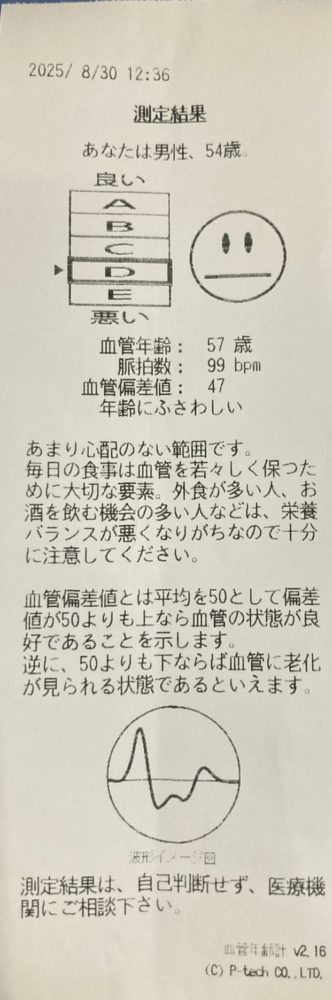 2025/ 8/30 12:36
測定結果
あなたは男性、54歳。
良い
A
B
C
D
E
悪い
血管年齢： 57 歳
脈拍数： 99 bpm
血管偏差値： 47
年齢にふさわしい
あまり心配のない範囲です。
毎日の食事は血管を若々しく保つた
めに大切な要素。外食が多い人、お
酒を飲む機会の多い人などは、栄養
バランスが悪くなりがちなので十分
に注意してください。
血管偏差値とは平均を50として偏差
値が50よりも上なら血管の状態が良
好であることを示します。
逆に、50よりも下ならば血管に老化
が見られる状態であるといえます。
波形イメージ図
測定結果は、自己判断せず、医療機
関にご相談下さい。
血管年齢計 v2.16
(C) P-tech CO.,LTD.